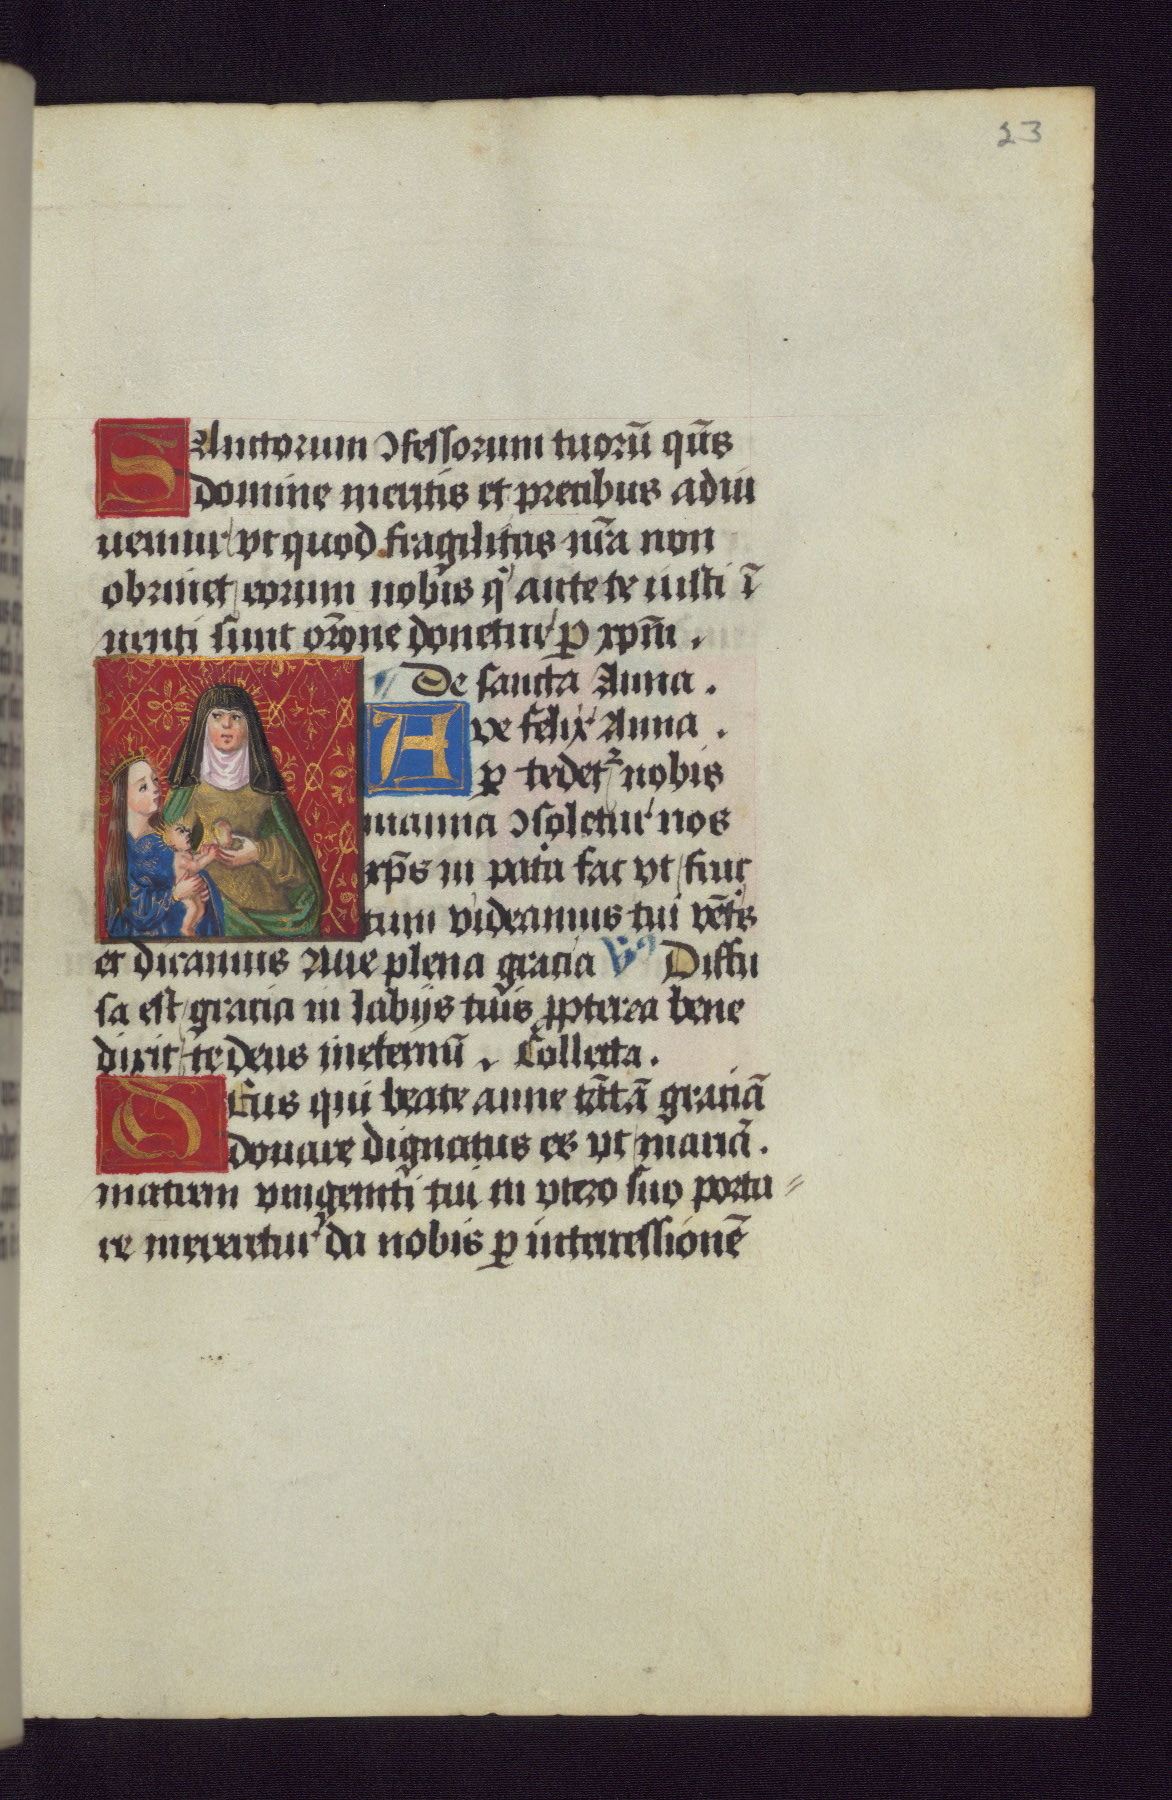 23
SAnctorum ɔfessorum tuorū qūs
domine meritis et precibus adiu
uemur ut quod fragilitas nr̄a non
obtinet eorum nobis qͥ ante te iusti ī
uenti sunt or̄one donetur ꝑ xpm̄.
De sancta Anna.
Ave felix Anna.
ꝑ te detͬ nobis
manna ɔsoletur nos
xp̄s in pat̓a fac vt fruc
tum videamus tui vēt̓s
et dicamus Aue plena gracia V̓ Diffu
sa est gracia in labijs tuis ꝓpterea bene
dixit te deus in eternū. Collecta.
DEus qui beate anne tātā graciā
donare dignatus es vt mariā.
matrem vnigeniti tui in vtero suo porta
re mereretur da nobis ꝑ intercessionē